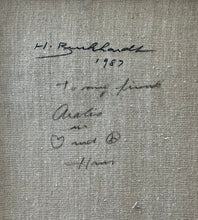 H. Burkhardt
1987
To my friend
in
♡ and ☮
Hans